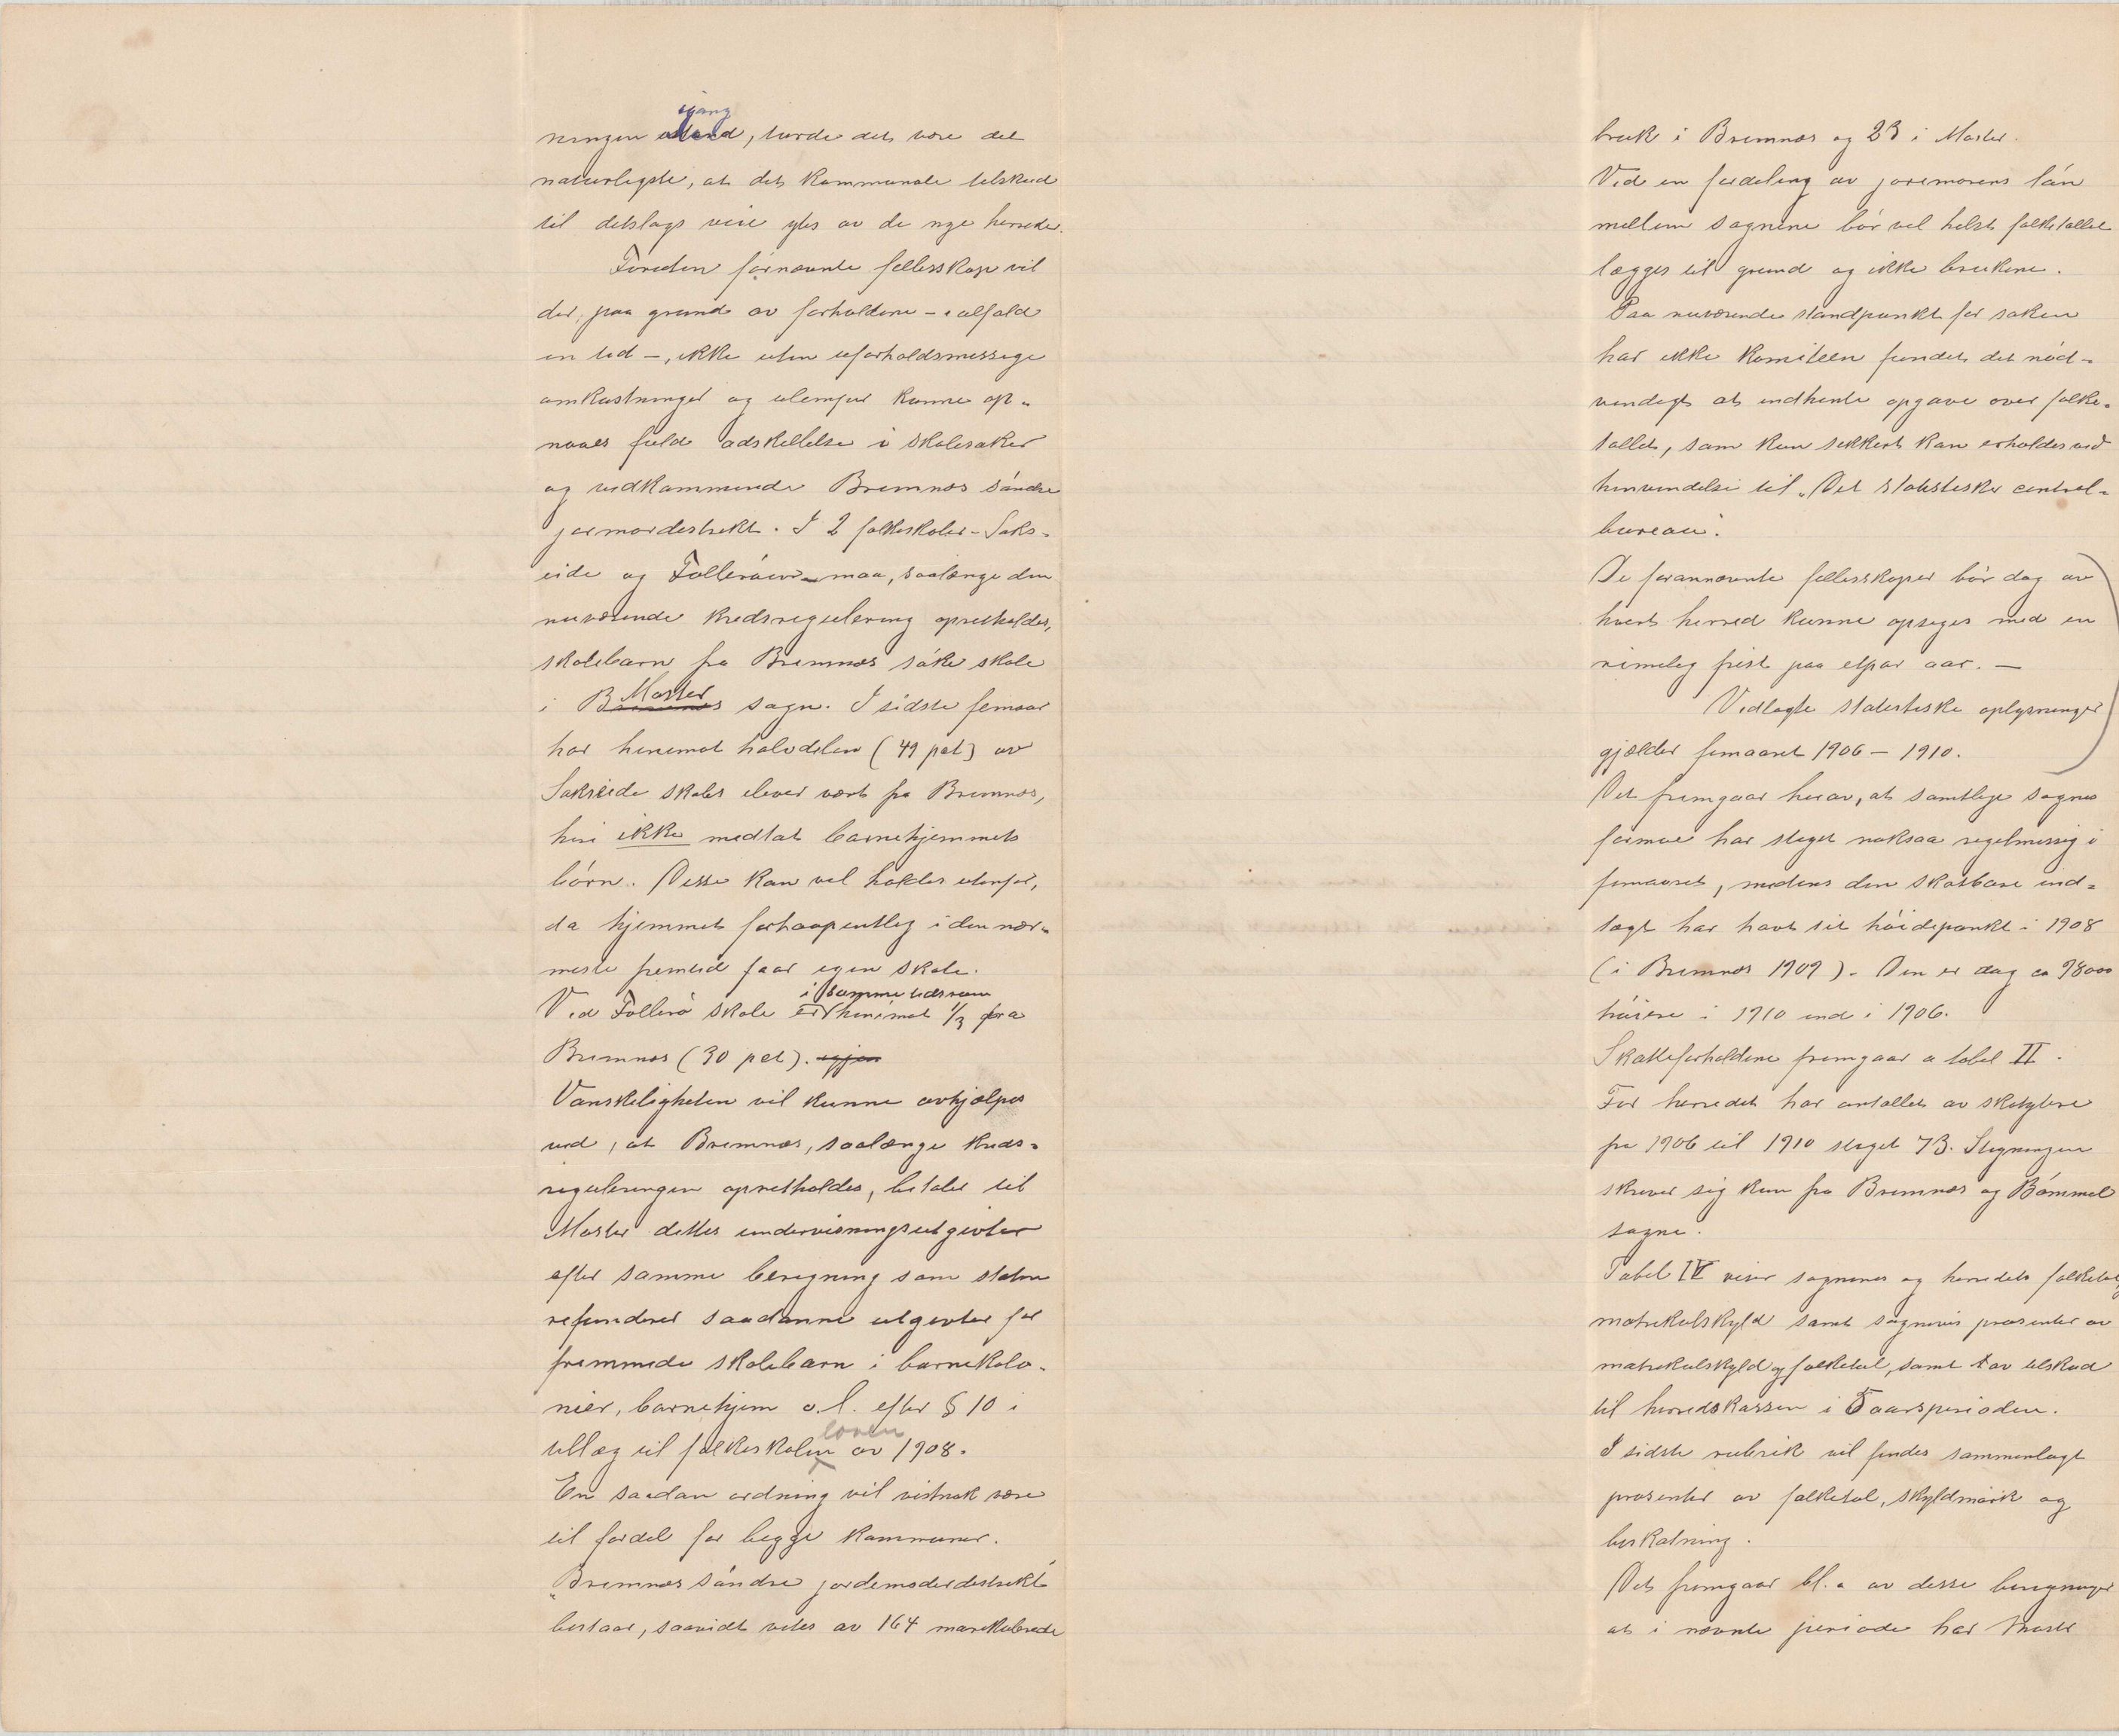 igang
ningen istand, turde det være det
naturligste, at det kommunale tilskud
til detslags veie ytes av de nye herreder.
Foruten fornævnte fellesskap vil
der, paa grund av forholdene - ialfald
en tid -, ikke uten uforholdsmessige
omkostninger og ulemper kunne op-
naaes fuld adskillelse i skolesaker
og vedkommende Bremnes söndre
jormordistrikt. I 2 folkeskoler - Saks-
eide og Folleröen - maa, saalænge den
nuværende kredsregulering opretholdes,
skolebarn fra Bremnes söke skole
i Bremnes Moster sogn. I sidste femaar
har henimot halvdelen (49 pct) av
Sakseide skoles elever vært fra Bremnes,
heri ikke medtat barnehjemmets
börn. Disse kan vel holdes utenfor,
da hjemmet forhaapentleg i den nær-
meste fremtid faar egen skole.
i samme tidsrum
Ved Follerö skole er henimot 1/3 fra
Bremnes (30 pct). igjen
Vanskeligheten vil kunne avhjælpes
ved, at Bremnes, saalænge kreds-
reguleringen opretholdes, betaler til
Moster dettes undervisningsutgivter
efter samme beregning som staten
refunderer saadanne utgivter for
fremmede skolebarn i barnekolo-
nier, barnehjem o.l. efter § 10 i
tillæg til folkeskolen loven av 1908.
En saadan ordning vil vistnok være
til fordel for begge kommuner.
"Bremnes söndre jordemoderdistrikt
bestaar, saavidt vites av 164 matrikulerede
bruk i Bremnes og 23 i Moster.
Ved en fordeling av jormorens lön
mellem sognene bör vel helst folketallet
lægges til grund og ikke brukene.
Paa nuværende standpunkt for saken
har ikke komiteen fundet det nöd-
vendigt at indhente opgave over folke-
tallet, som kun sikkert kan erholdes ved
henvendelse til "Det statistiske central-
bureau".
De forannævnte fellesskaper bör dog av
hvert herred kunne opsiges med en
rimelig frist paa etpar aar. —
Vedlagte statistiske oplysninger
gjælder femaaret 1906 - 1910.
Det fremgaar herav, at samtlige sognes
formue har steget noksaa regelmessig i
femaaret, medens den skatbare ind-
tægt har havt sit höidepunkt i 1908
(i Bremnes 1909). Den er dog ca 98000
höiere i 1910 end i 1906.
Skatteforholdene fremgaar a tabel II.
For herredet har antallet av skatytere
fra 1906 til 1910 steget 73. Stigningen
skriver sig kun fra Bremnes og Bömmel
sogne.
Tabel IV viser sognenes og herredets folketal,
matrikulskyld samt sognenes prosenter av
matrikulskyld og folketal, samt av tilskud
til herredskassen i 5 aarsperioden.
I sidste rubrik vil findes sammenlagt
prosenter av folketal, skyldmark og
beskatning.
Det fremgaar bl. a av disse beregninger
at i nævnte periode har Moster